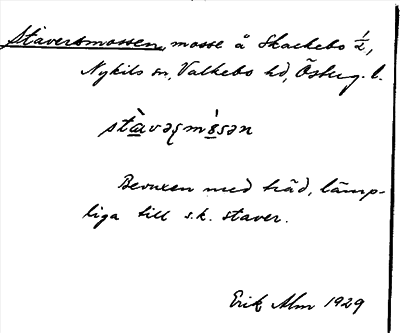 Staversmossen, mosse å Skackebo 1/2,
Nykils sn, Valkebo hd, Östug. l.
stàvəsmósən
Bevuxen med träd, lämp-
liga till s.k. staver.
Erik Alm 1929